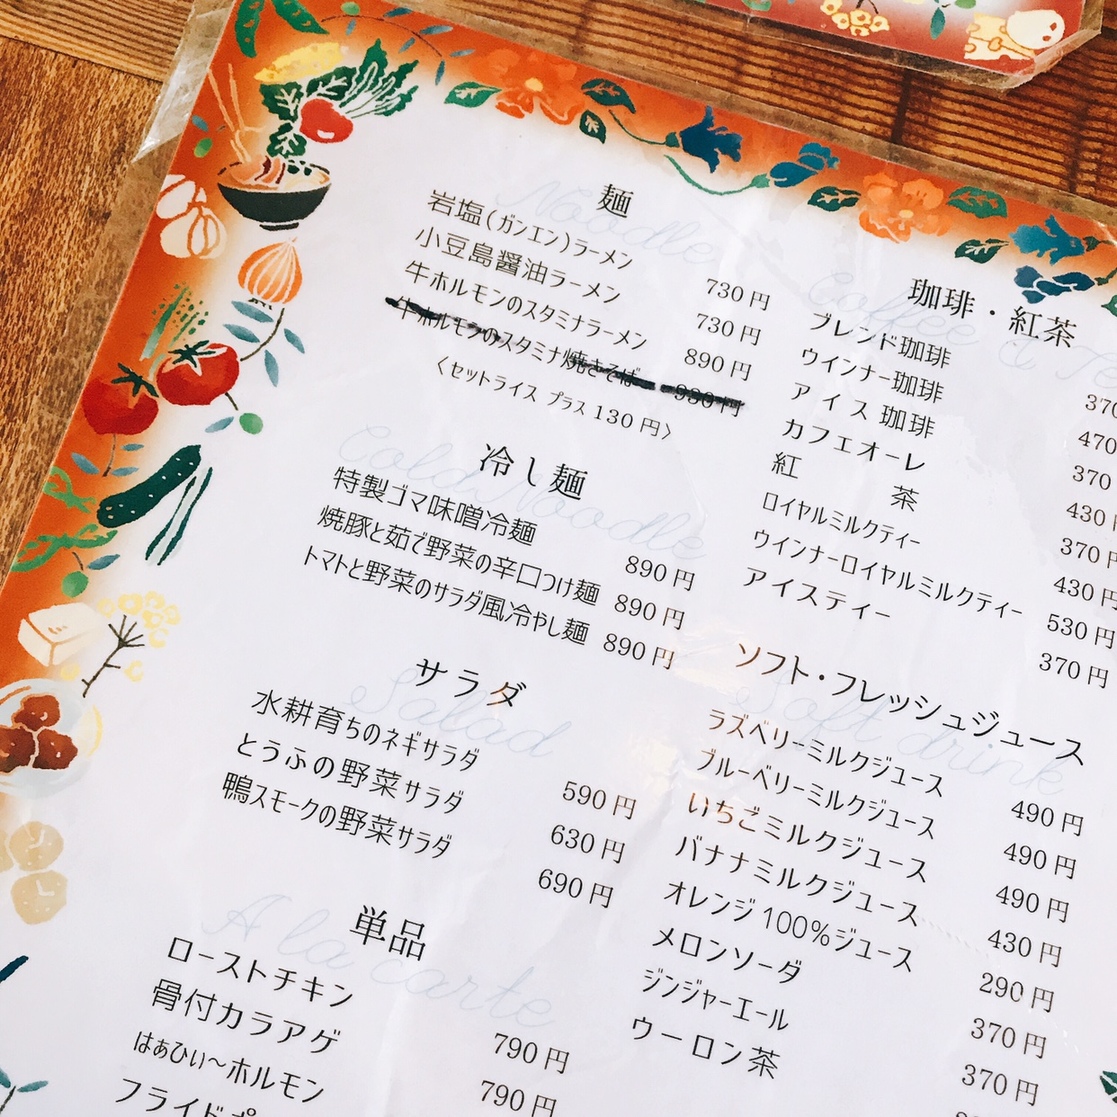 麺
Noodle
岩塩(ガンエン)ラーメン 730円
小豆島醤油ラーメン 730円
牛ホルモンのスタミナラーメン 890円
牛ホルモンのスタミナ焼きそば 930円
〈セットライス プラス130円〉
冷し麺
Cold Noodle
特製ゴマ味噌冷麺 890円
焼豚と茹で野菜の辛口つけ麺 890円
トマトと野菜のサラダ風冷やし麺 890円
サラダ
Salad
水耕育ちのネギサラダ 590円
とうふの野菜サラダ 630円
鴨スモークの野菜サラダ 690円
単品
A la carte
ローストチキン 790円
骨付カラアゲ 790円
はぁひぃ〜ホルモン
フライドポ
珈琲・紅茶
Coffee & Te
ブレンド珈琲 370
ウインナー珈琲 470
アイス珈琲 370
カフェオーレ 430円
紅茶 370円
ロイヤルミルクティー 430円
ウインナーロイヤルミルクティー 530円
アイスティー 370円
ソフト・フレッシュジュース
Soft drink
ラズベリーミルクジュース 490円
ブルーベリーミルクジュース 490円
いちごミルクジュース 490円
バナナミルクジュース 430円
オレンジ100%ジュース 290円
メロンソーダ 370円
ジンジャーエール 370円
ウーロン茶